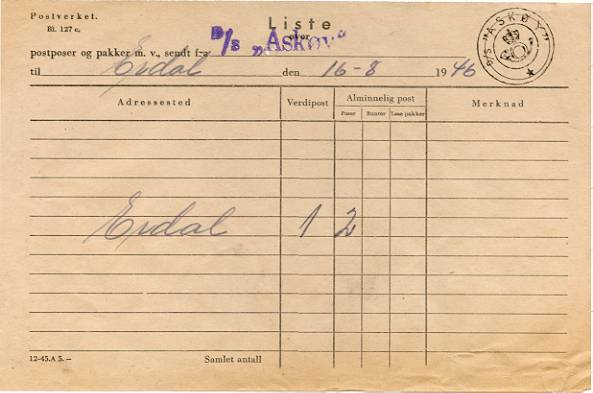 Postverket.
Bl. 127 c.
Liste
over
D/S „Askøy“
postposer og pakker m. v., sendt fra
til Erdal den 16-8 1946
D/S "ASKØY"
Adressested Verdipost Alminnelig post Merknad
Poser Bunter Løse pakker
Erdal 1 2
12-45.A 5.— Samlet antall